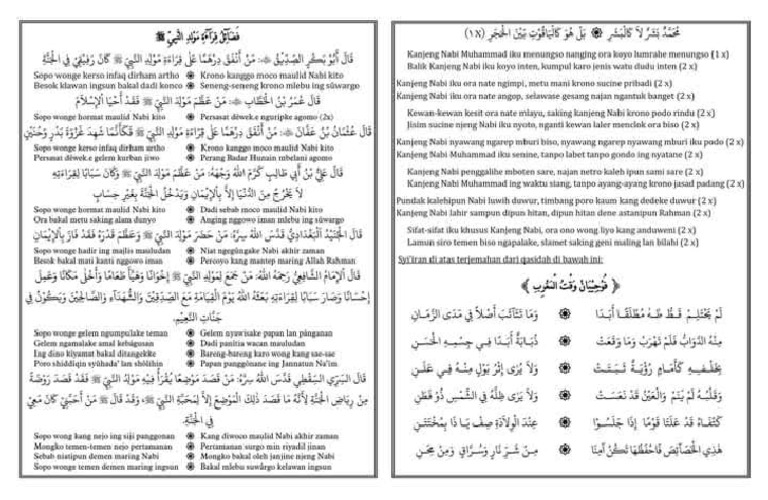 فَضَائِلُ قِرَاءَةِ مَوْلِدِ النَّبِيِّ ﷺ
قَالَ أَبُو بَكْرٍ الصِّدِّيْقُ: مَنْ أَنْفَقَ دِرْهَمًا عَلَى قِرَاءَةِ مَوْلِدِ النَّبِيِّ ﷺ كَانَ رَفِيْقِيْ فِي الْجَنَّةِ
Sopo wonge kerso infaq dirham artho ۞ Krono kanggo moco maulid Nabi kito
Besok klawan ingsun bakal dadi konco ۞ Seneng-seneng krono mlebu ing suwargo
قَالَ عُمَرُ بْنُ الْخَطَّابِ: مَنْ عَظَّمَ مَوْلِدَ النَّبِيِّ ﷺ فَقَدْ أَحْيَا الْإِسْلَامَ
Sopo wonge hormat maulid Nabi kito ۞ Persasat dewek'e nguripke agomo (2x)
قَالَ عُثْمَانُ بْنُ عَفَّانَ: مَنْ أَنْفَقَ دِرْهَمًا عَلَى قِرَاءَةِ مَوْلِدِ النَّبِيِّ ﷺ فَكَأَنَّمَا شَهِدَ غَزْوَةَ بَدْرٍ وَحُنَيْنٍ
Sopo wonge kerso infaq dirham artho ۞ Krono kanggo moco maulid Nabi kito
Persasat dewek.e gelem kurban jiwo ۞ Perang Badar Hunain mbelani agomo
قَالَ عَلِيُّ بْنُ أَبِي طَالِبٍ كَرَّمَ اللهُ وَجْهَهُ: مَنْ عَظَّمَ مَوْلِدَ النَّبِيِّ ﷺ وَكَانَ سَبَبًا لِقِرَاءَتِهِ
لَا يَخْرُجُ مِنَ الدُّنْيَا إِلَّا بِالْإِيْمَانِ وَيَدْخُلُ الْجَنَّةَ بِغَيْرِ حِسَابٍ
Sopo wonge hormat maulid Nabi kito ۞ Dadi sebab moco maulid Nabi kito
Ora bakal metu saking alam dunyo ۞ Anging nggowo iman mlebu ing suwargo
قَالَ الْجُنَيْدُ الْبَغْدَادِيُّ قَدَّسَ اللهُ سِرَّهُ: مَنْ حَضَرَ مَوْلِدَ النَّبِيِّ ﷺ وَعَظَّمَ قَدْرَهُ فَقَدْ فَازَ بِالْإِيْمَانِ
Sopo wonge hadir ing majlis mauludan ۞ Niat ngegungake Nabi akhir zaman
Besok bakal mati kanti nggowo iman ۞ Peroyo kang mantep maring Allah Rahman
قَالَ الْإِمَامُ الشَّافِعِيُّ رَحِمَهُ اللهُ: مَنْ جَمَعَ لِمَوْلِدِ النَّبِيِّ ﷺ إِخْوَانًا وَهَيَّأَ طَعَامًا وَأَخْلَى مَكَانًا وَعَمِلَ
إِحْسَانًا وَصَارَ سَبَبًا لِقِرَاءَتِهِ بَعَثَهُ اللهُ يَوْمَ الْقِيَامَةِ مَعَ الصِّدِّيْقِيْنَ وَالشُّهَدَآءِ وَالصَّالِحِيْنَ وَيَكُوْنُ فِيْ
جَنَّاتِ النَّعِيْمِ
Sopo wonge gelem ngumpulake teman ۞ Gelem nyawisake papan lan panganan
Gelem ngamalake amal kebagusan ۞ Dadi panitia wacan mauludan
Ing dino kiyamat bakal ditangekke ۞ Bareng-bareng karo wong kang sae-sae
Poro shiddiqin syuhada' lan sholihin ۞ Papan panggonane ing Jannatun Na'im
قَالَ السَّرِيُّ السَّقَطِيُّ قَدَّسَ اللهُ سِرَّهُ: مَنْ قَصَدَ مَوْضِعًا يُقْرَأُ فِيْهِ مَوْلِدُ النَّبِيِّ ﷺ فَقَدْ قَصَدَ رَوْضَةً
مِنْ رِيَاضِ الْجَنَّةِ لِأَنَّهُ مَا قَصَدَ ذٰلِكَ الْمَوْضِعَ إِلَّا لِمَحَبَّةِ النَّبِيِّ ﷺ، وَقَدْ قَالَ ﷺ مَنْ أَحَبَّنِيْ كَانَ مَعِيْ
فِي الْجَنَّةِ
Sopo wong kang nejo ing siji panggonan ۞ Kang diwoco maulid Nabi akhir zaman
Mongko temen-temen nejo pertamanan ۞ Pertamanan surgo min riyadil jinan
Sebab niatipun demen maring Nabi ۞ Mongko bakal oleh janjine njeng Nabi
Sopo wonge temen demen maring ingsun ۞ Bakal mlebu suwargo kelawan ingsun
مُحَمَّدٌ بَشَرٌ لَا كَالْبَشَرِ ۞ بَلْ هُوَ كَالْيَاقُوْتِ بَيْنَ الْحَجَرِ (١x)
Kanjeng Nabi Muhammad iku menungso nanging ora koyo lumrahe menungso (1 x)
Balik Kanjeng Nabi iku koyo inten, kumpul karo jenis watu dudu inten (2 x)
Kanjeng Nabi iku ora nate ngimpi, metu mani krono sucine pribadi (2 x)
Kanjeng Nabi iku ora nate angop, selawase gesang najan ngantuk banget (2 x)
Kewan-kewan kesit ora nate mlayu, saking kanjeng Nabi krono podo rindu (2 x)
Jisim sucine njeng Nabi iku nyoto, nganti kewan laler menclok ora biso (2 x)
Kanjeng Nabi nyawang ngarep mburi biso, nyawang ngarep nyawang mburi iku podo (2 x)
Kanjeng Nabi Muhammad iku senine, tanpo labet tanpo gondo ing nyatane (2 x)
Kanjeng Nabi penggalihe mboten sare, najan netro kaleh ipun sami sare (2 x)
Kanjeng Nabi Muhammad ing waktu siang, tanpo ayang-ayang krono jasad padang (2 x)
Pundak kalehipun Nabi luwih duwur, timbang poro kaum kang dedeke duwur (2 x)
Kanjeng Nabi lahir sampun dipun hitan, dipun hitan dene astanipun Rahman (2 x)
Sifat-sifat iku khusus Kanjeng Nabi, ora ono wong liyo kang anduweni (2 x)
Lamun siro temen biso ngapalake, slamet saking geni maling lan bilahi (2 x)
Syi'iran di atas terjemahan dari qasidah di bawah ini:
لَمْ يَحْتَلِمْ قَطُّ طٰهَ مُطْلَقًا أَبَدًا ۞ وَمَا تَثَائَبَ أَصْلًا فِيْ مَدَى الزَّمَانِ
مِنْهُ الدَّوَابُّ فَلَمْ تَهْرَبْ وَمَا وَقَعَتْ ۞ ذُبَابَةٌ أَبَدًا فِيْ جِسْمِهِ الْحَسَنِ
بِخَلْفِهِ كَأَمَامٍ رُؤْيَةٌ ثَبَتَتْ ۞ وَلَا يُرَى إِثْرُ بَوْلٍ مِنْهُ فِيْ عَلَنِ
وَقَلْبُهُ لَمْ يَنَمْ وَالْعَيْنُ قَدْ نَعَسَتْ ۞ وَلَا يَرَى ظِلَّهُ فِي الشَّمْسِ ذُوْ فَطَنِ
كَتْفَاهُ قَدْ عَلَتَا قَوْمًا إِذَا جَلَسُوْا ۞ عِنْدَ الْوِلَادَةِ صِفْ يَا ذَا بِمُخْتَتَنِ
هٰذِي الْخَصَائِصَ فَاحْفَظْهَا تَكُنْ أٰمِنًا ۞ مِنْ شَرِّ نَارٍ وَسُرَّاقٍ وَمِنْ مِحَنِ